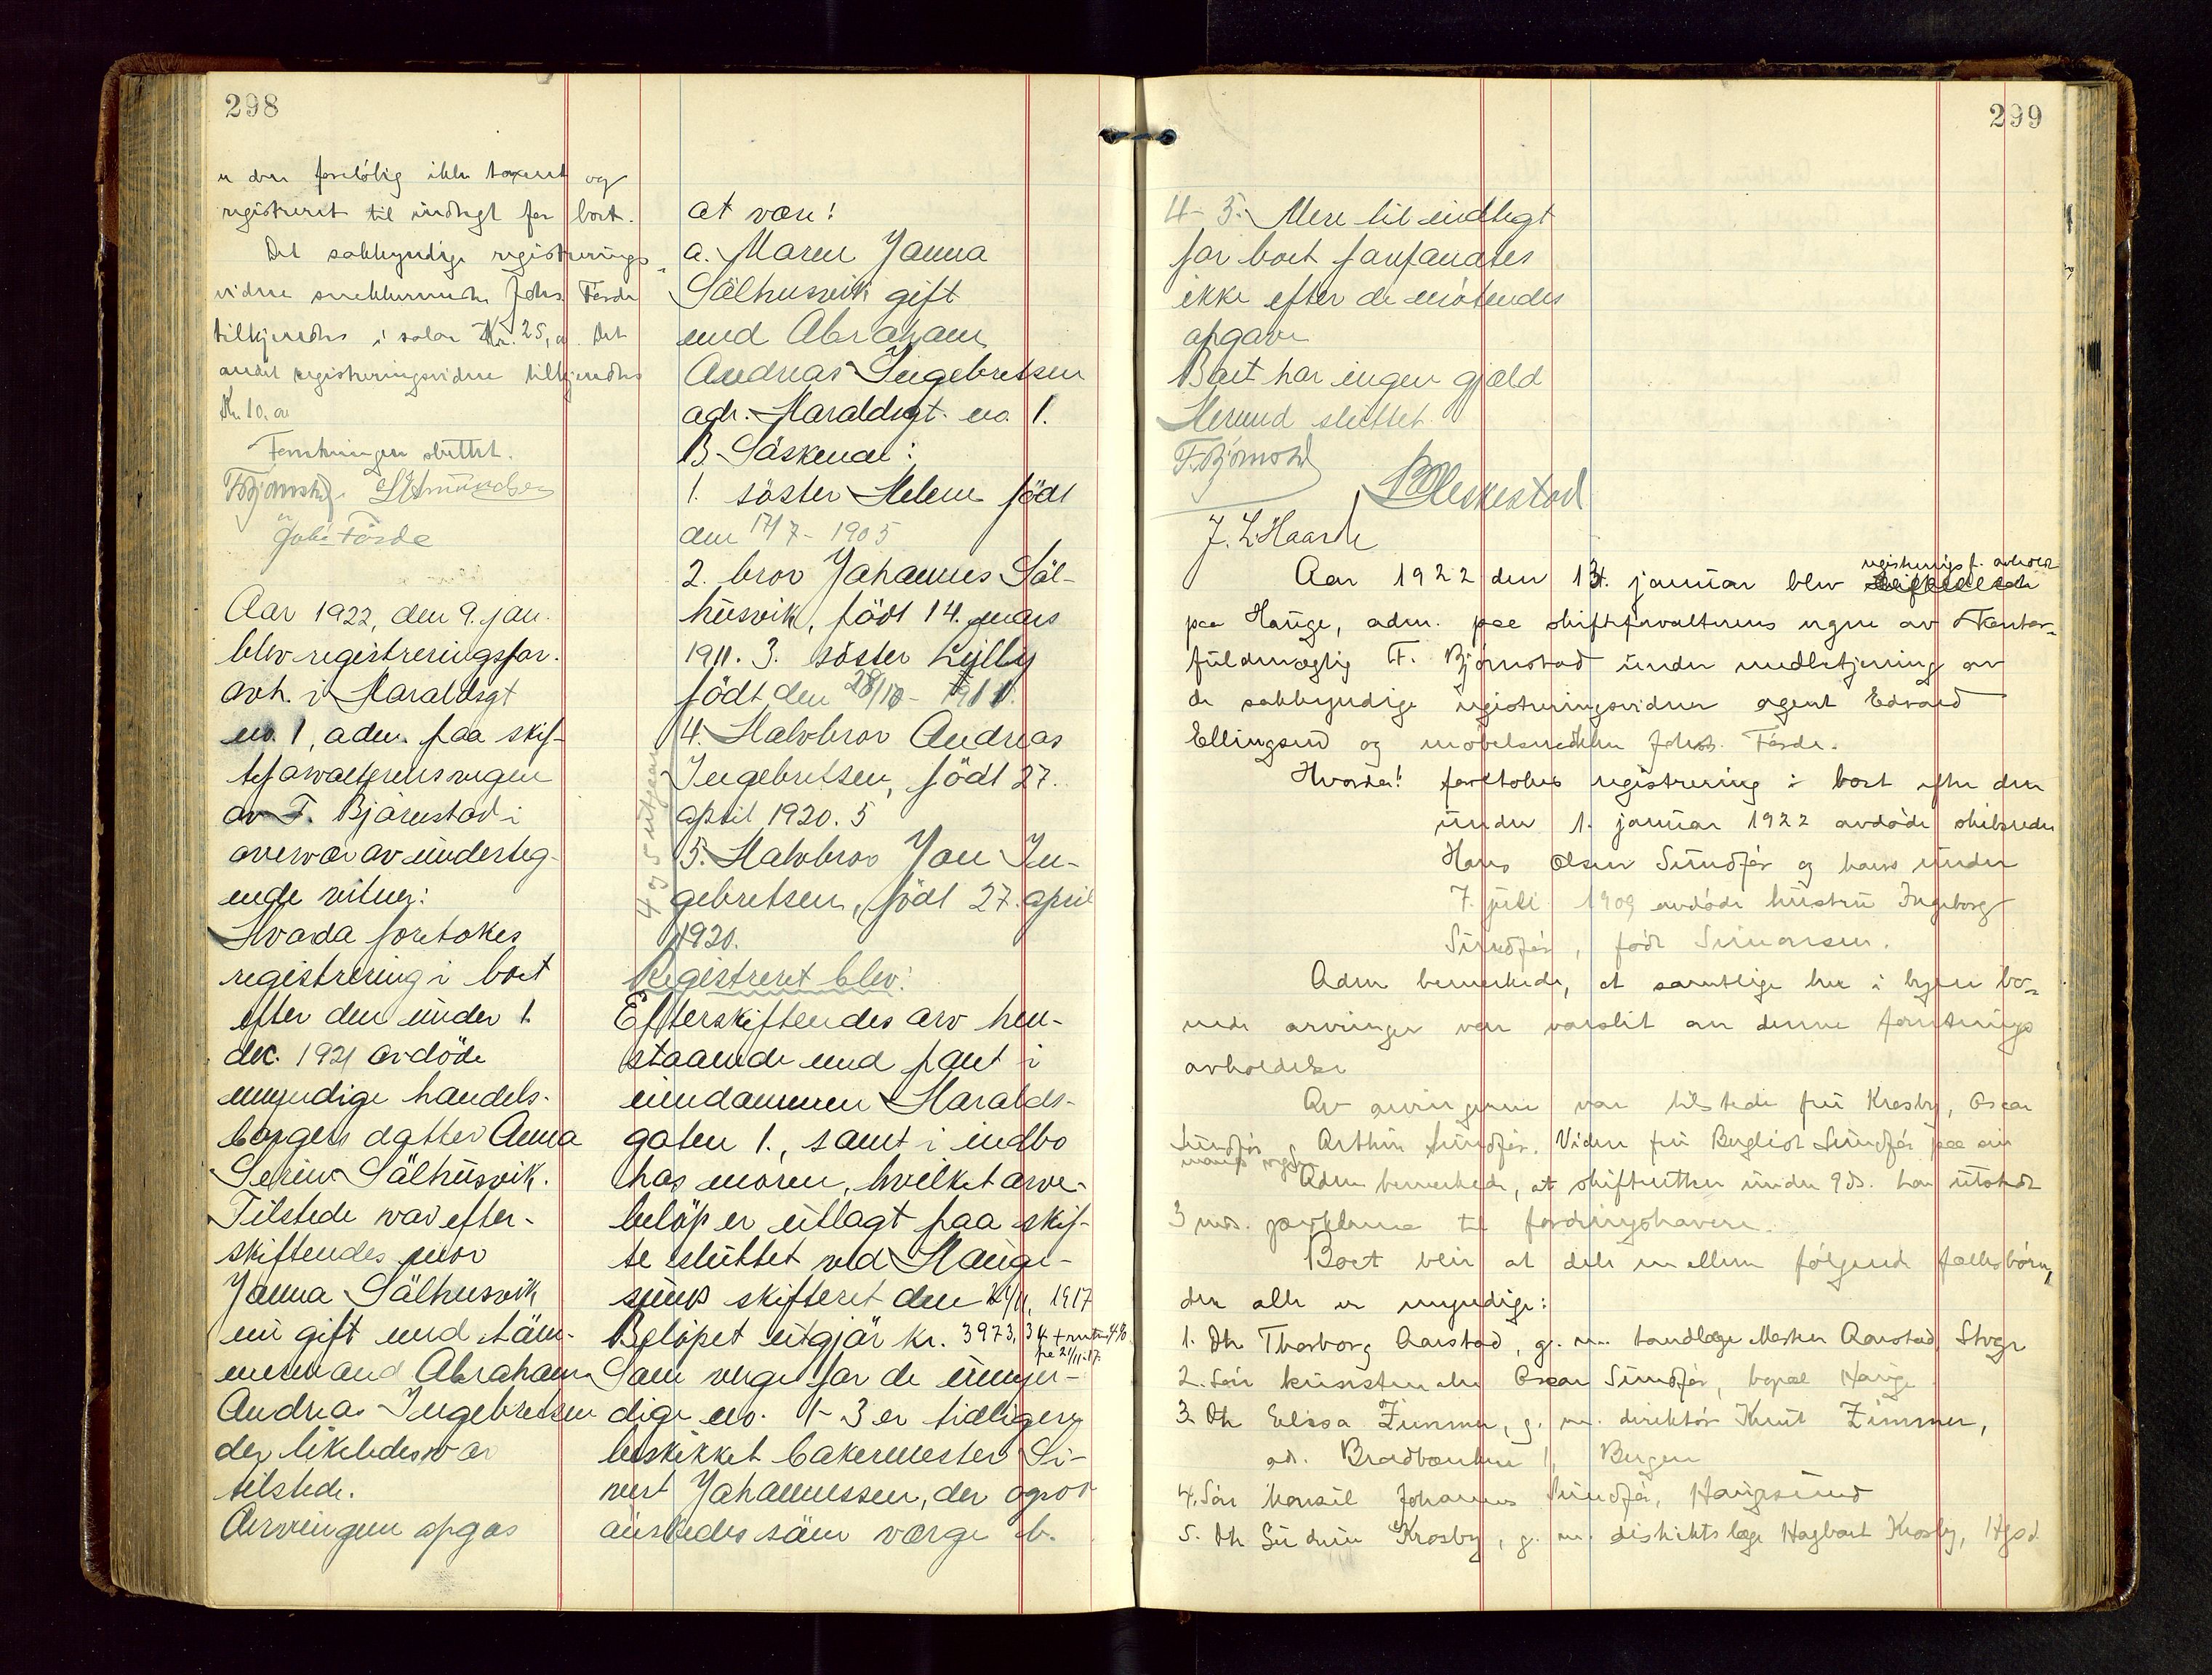 298
er den foreløbig ikke taxert og
registreret til indtægt for boet.
Det sakkyndige registrerings-
vidne snekkermester Johs Førde
tilkjendtes i salær Kr. 25,00. Det
andet registreringsvidne tilkjendtes
Kr. 10.00
Forretningen sluttet.
F Bjørnstad.
Johs Førde
Aar 1922, den 9. jan.
blev registreringsfor.
avh. i Haraldsgt
no. 1, adm. paa skif-
teforvalterens vegne
av F. Bjørnstad i
overvær av underteg-
nede vitner:
Hvorda foretokes
registrering i boet
efter den under 1.
dec. 1921 avdöde
umyndige handels-
borgers datter Anna
Serine Sälhusvik.
Tilstede var efter-
skiftendes mor
Janna Sälhusvik
nu gift med täm-
mermand Abraham
Andreas Ingebretsen
der likeledes var
tilstede.
Arvingene opgas
at være:
a. Moren Janna
Sälhusvik gift
med Abraham
Andreas Ingebretsen
adr. Haraldsgt. no. 1.
B. Söskende:
1. söster Helene födt
den 17/7 - 1905
2. bror Johannes Säl-
husvik, födt 14. mars
1911. 3. söster Lylly
födt den 28/10 - 1911.
4. Halvbror Andreas
Ingebretsen, födt 27.
april 1920. 5
5. Halvbror Jon In-
gebretsen, födt 27. april
1920.
4 og 5 utgaar
Registreret blev:
Efterskiftendes arv hen-
staaende med pant i
eiendommen Haralds-
gaten 1., samt i indbo
hos moren, hvilket arve-
belöp er utlagt paa skif-
te sluttet ved Hauge-
sunds skifteret den 21/11, 1917
Belöpet utgjör kr. 3973,34 + renter 4%
fra 21/11-17.
Som verge for de umyn-
dige no. 1-3 er tidligere
beskikket bakermester Si-
vert Johannessen, der ogsaa
önskedes som værge b.
299
4-5. Mere til indtægt
for boet forefandtes
ikke efter de mötendes
opgave
Boet har ingen gjæld
Hermed sluttet.
F. Bjørnstad
B Oleskestad
J. L. Haarde
registrerings f. avholdt
Aar 1922 den 13. januar blev
paa Hauge, adm. paa skifteforvalterens vegne av Kontor-
fuldmægtig F. Bjørnstad under medbetjening av
de sakkyndige registreringsvidner agent Edvard
Ellingsund og møbelsnekker Johs. Førde.
Hvorda: foretokes registrering i boet efter den
under 1. januar 1922 avdøde skibsreder
Hans Olsen Sundfør og hans under
7. juli 1909 avdøde hustru Ingeborg
Sundfør, født Simonsen.
Adm bemerkede, at samtlige her i byen bo-
ende arvinger var varslet om denne forretnings
avholdelse
Av arvingerne var tilstede fru Krosby, Oscar
Sundfør, Arthur Sundfør. Videre fru Bergliot Sundfør paa sin
mands vegne
Adm bemerkede, at skifteretten under 9ds. har utstedt
3 mds. proklama til fordringshavere.
Boet blir at dele mellem følgende fællesbørn,
der alle er myndige:
1. Dtr Thorborg Aarstad, g. m. tandlæge Morten Aarstad, Stvgr
2. Søn kunstmaler Oscar Sundfør, bopæl Hauge
3. Dtr Elisa Zimmer, g. m. direktør Knut Zimmer,
ad. Bradbænken 1, Bergen
4. Søn konsul Johannes Sundfør, Haugesund
5. Dtr Gudrun Krosby, g. m. distriktslæge Hagbart Krosby, Hgsd